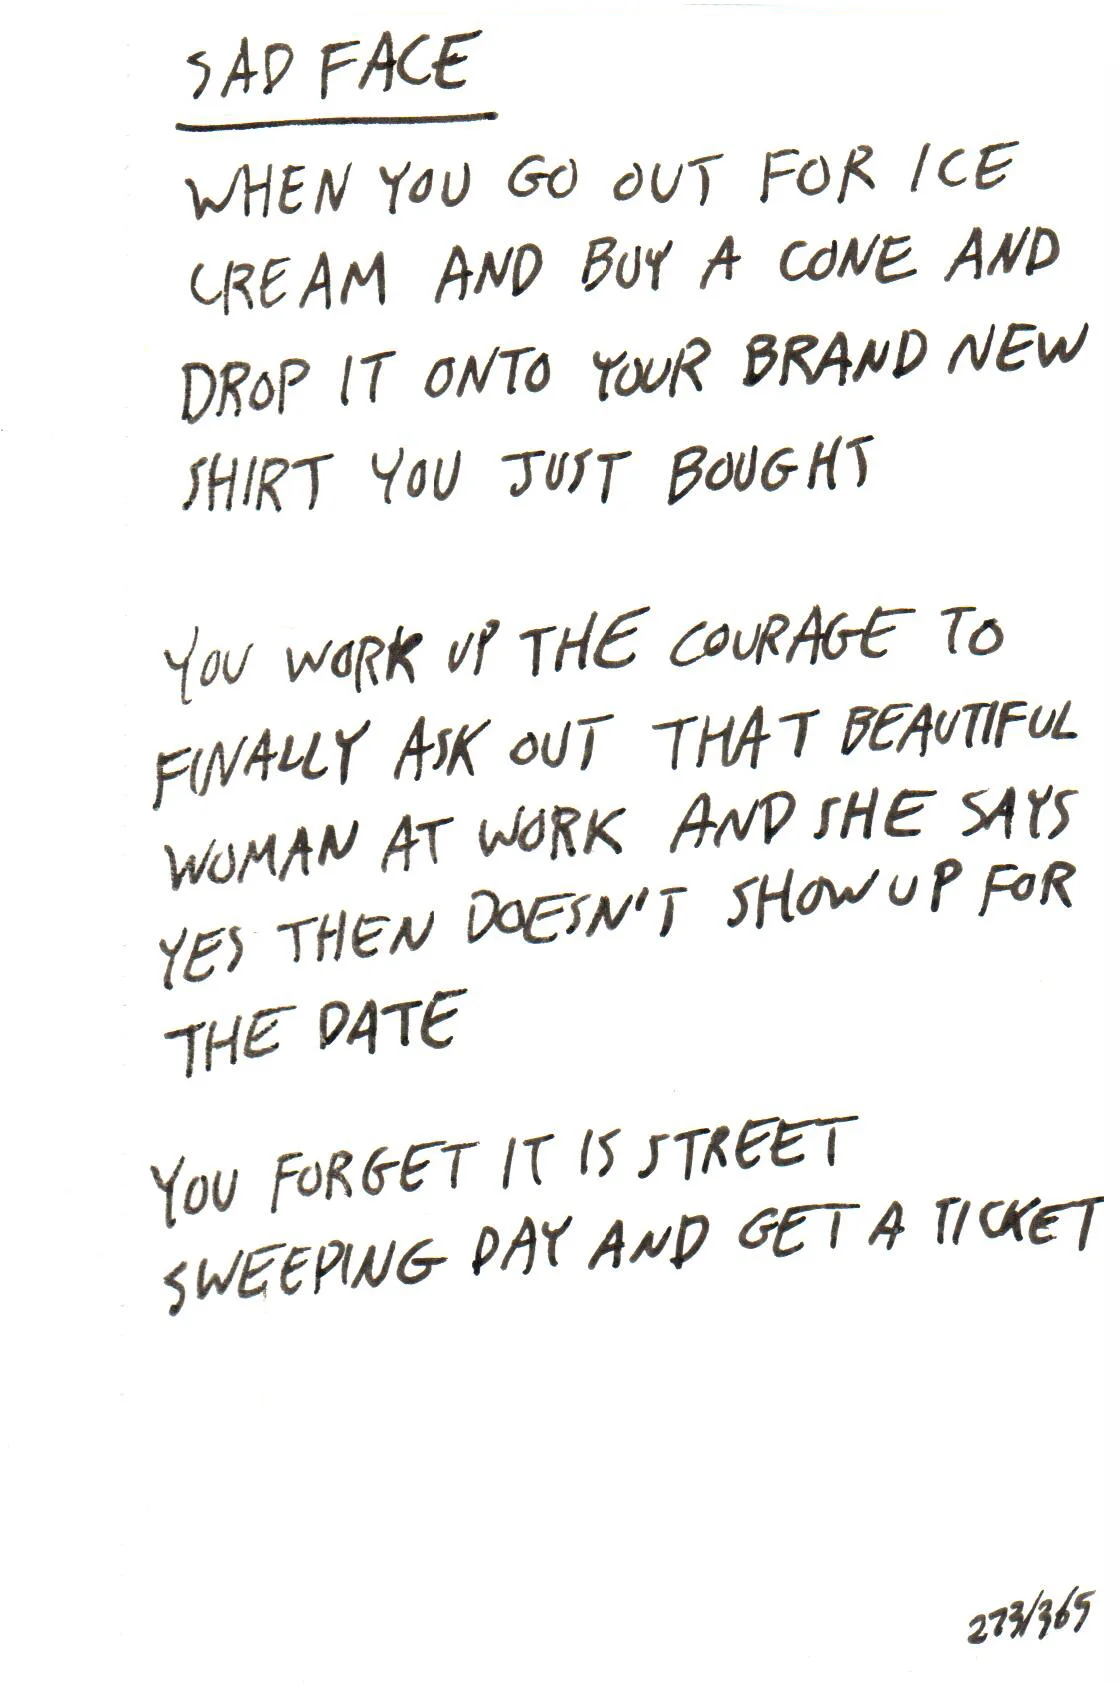 SAD FACE
WHEN YOU GO OUT FOR ICE
CREAM AND BUY A CONE AND
DROP IT ONTO YOUR BRAND NEW
SHIRT YOU JUST BOUGHT
YOU WORK UP THE COURAGE TO
FINALLY ASK OUT THAT BEAUTIFUL
WOMAN AT WORK AND SHE SAYS
YES THEN DOESN'T SHOW UP FOR
THE DATE
YOU FORGET IT IS STREET
SWEEPING DAY AND GET A TICKET
273/365